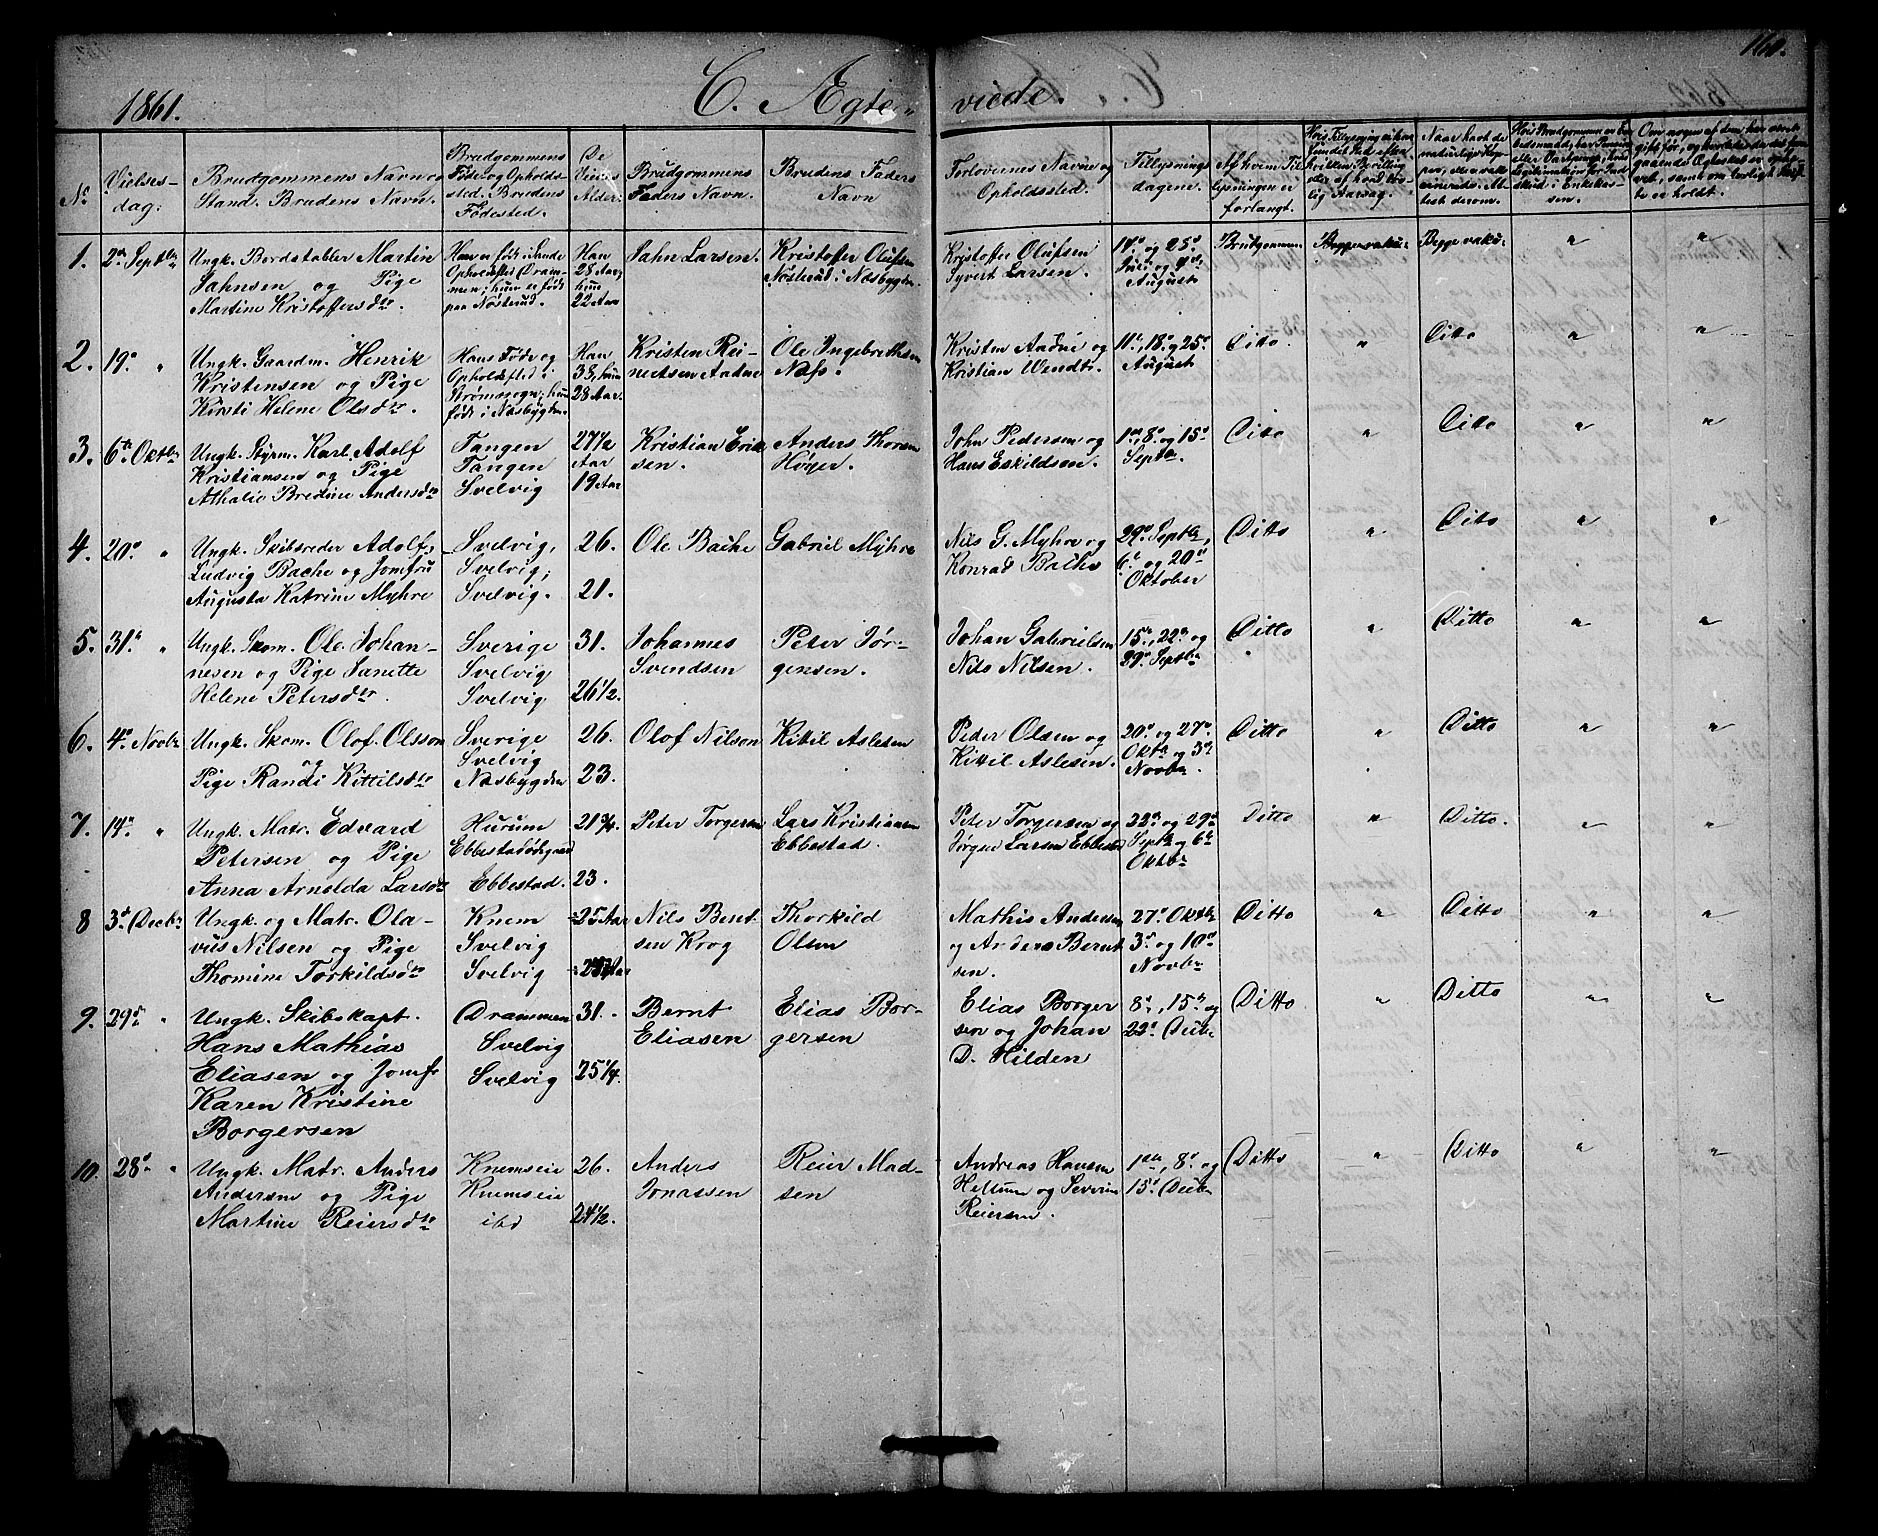 160.
1861. C. Ægte- viede.
No
Vielses-
dag:
Brudgommens Navn og
Stand. Brudens Navn.
Brudgommens
Føde og Opholds-
sted. Brudens
Fødested.
De
Viedes
Alder:
Brudgommens
Faders Navn.
Brudens Faders
Navn
Forlovernes Navne og
Opholdssted.
Tillysnings
dagene.
Af hvem Til-
lysningen er
forlangt.
1. 2den Septbr
Ungk. Bordstabler Martin
Jahnsen og Pige
Martine Kristoffersdtr.
Han er født i Sande
Opholdsted Dram-
men; hun er født
paa Nøsterud.
Han
28 Aar,
hun
22 Aar
Jahn Larsen.
Kristoffer Olufsen
Nøsterud i Næsbygden.
Kristoffer Olufsen
Syvert Larsen.
August
Brudgommen
Begge vaks:
Begge vaks:
" "
2. 19de "
Ungk. Gaardm. Henrik
Kristensen og Pige
Kirsti Helene Olsdtr.
Hans Føde og
Opholdssted i
Strømsogn; hun
født i Næsbygden.
Han
38, hun
28 Aar.
Kristen Rei-
Ole Ingebrethsen
Næss.
Kristen Aadne og
Kristian Wendt.
11te, 18de og 25de
August
Ditto. " Ditto " "
3. 6te Oktbr
Ungk. Styrm. Karl Adolf
Kristiansen og Pige
Athalie Bredine Andersdtr
Tangen
Tangen
Svelvig
27 1/2
Aar
19 Aar
Kristian Erik
sen.
Anders Thorsen
Høyer.
John Pedersen og
Hans Eskildsen.
1ste, 8de og 15de
Septbr.
Ditto " Ditto " "
4. 20de "
Ungk. Skibsreder Adolf
Ludvig Bache og Jomfru
Augusta Katrine Myhre
Svelvig,
Svelvig;
Svelvig.
26.
21.
Ole Bache
Gabriel Myhre
Nils G. Myhre og
Konrad Bache
29de Septbr,
6te og 20de
Oktober
Ditto " Ditto " "
5. 31te "
Ungk. Skom. Ole Johan-
nesen og Pige Janette
Helene Petersdtr.
Sverige
Svelvig
Svelvig
31.
26 1/2.
Johannes
Svendsen
Peter Jør-
gensen.
Johan Gabrielsen
Nils Nilsen.
15de, 22de og
29de Septbr
Ditto " Ditto " "
6. 4de Novbr
Ungk. Skom. Olof Olsson
og
Pige Randi Kittilsdtr
Sverige
Svelvig
Næsbygden
26.
23.
Olof Nilson
Kittil Aslesen
Peder Olsen og
Kittil Aslesen.
20de og 27de
Oktbr og 3die
Novbr
Ditto " Ditto " "
7. 14de "
Ungk. Matr. Edvard
Petersen og Pige
Anna Arnolda Larsdtr
Hurum
Ebbestadødegaard
Ebbestad.
21 3/4.
23.
Peter Torgersen
Lars Kristiansen
Ebbestad.
Peter Torgersen og
Jørgen Larsen Ebbestad
22de og 29de
Septbr og 6te
Oktbr
Ditto " Ditto. " "
8 3die Decbr
Ungk. og Matr. Ola-
vus Nilsen og Pige
Thomine Torkildsdtr
Knem
Svelvig
Svelvig
25 Aar
Nils Bent
sen Krog
Thorkild
Olsen
Mathis Andersen
og Anders Bernt
sen.
27de Oktbr
3die og 10de
Novbr
Ditto " Ditto " "
9. 29de "
Ungk. Skibskapt.
Hans Mathias
Eliasen og Jomfr
Karen Kristine
Borgersen
Drammen
Svelvig
Svelvig
31.
25 1/4.
Bernt
Eliasen
Elias Bor-
gersen
Elias Borger
sen og Johan
D. Hilden
8de, 15de og
22de Decbr
Ditto " Ditto " "
10. 28de "
Ungk. Matr. Anders
Andersen og Pige
Martine Reiersdtr
Knemseie
Knemseie
ibd
26.
24 1/2.
Anders
Jonassen
Reier Mad-
sen
Andreas Hansen
Hellum og Severin
Reiersen.
1ste, 8de og
15de Decbr
Ditto " Ditto " "